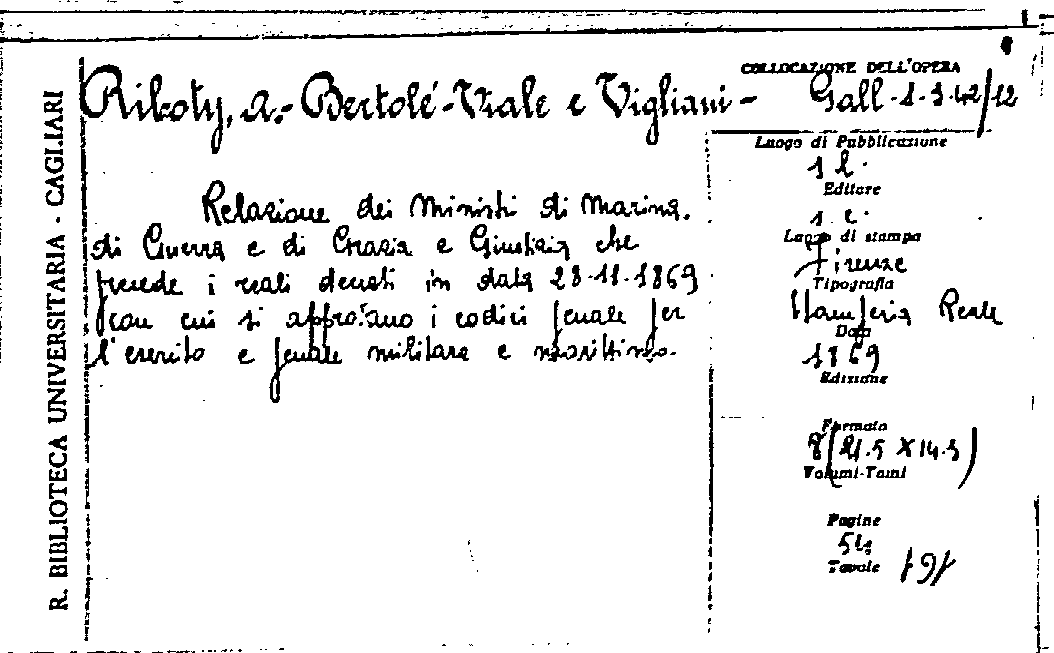 R. BIBLIOTECA UNIVERSITARIA - CAGLIARI
Riboty, A. - Bertolé-Viale e Vigliani -
COLLOCAZIONE DELL'OPERA
Gall. 1. 3. 42/12
Relazione dei Ministri di Marina,
di Guerra e di Grazia e Giustizia che
precede i reali decreti in data 28-11-1869
con cui si approvano i codici penale per
l'esercito e penale militare e marittimo.
Luogo di Pubblicazione
s. l.
Editore
s. e.
Luogo di stampa
Firenze
Tipografia
Stamperia Reale
Data
1869
Edizione
Formato
8 (21.5 X 14.5)
Volumi-Tomi
Pagine
54
Tavole